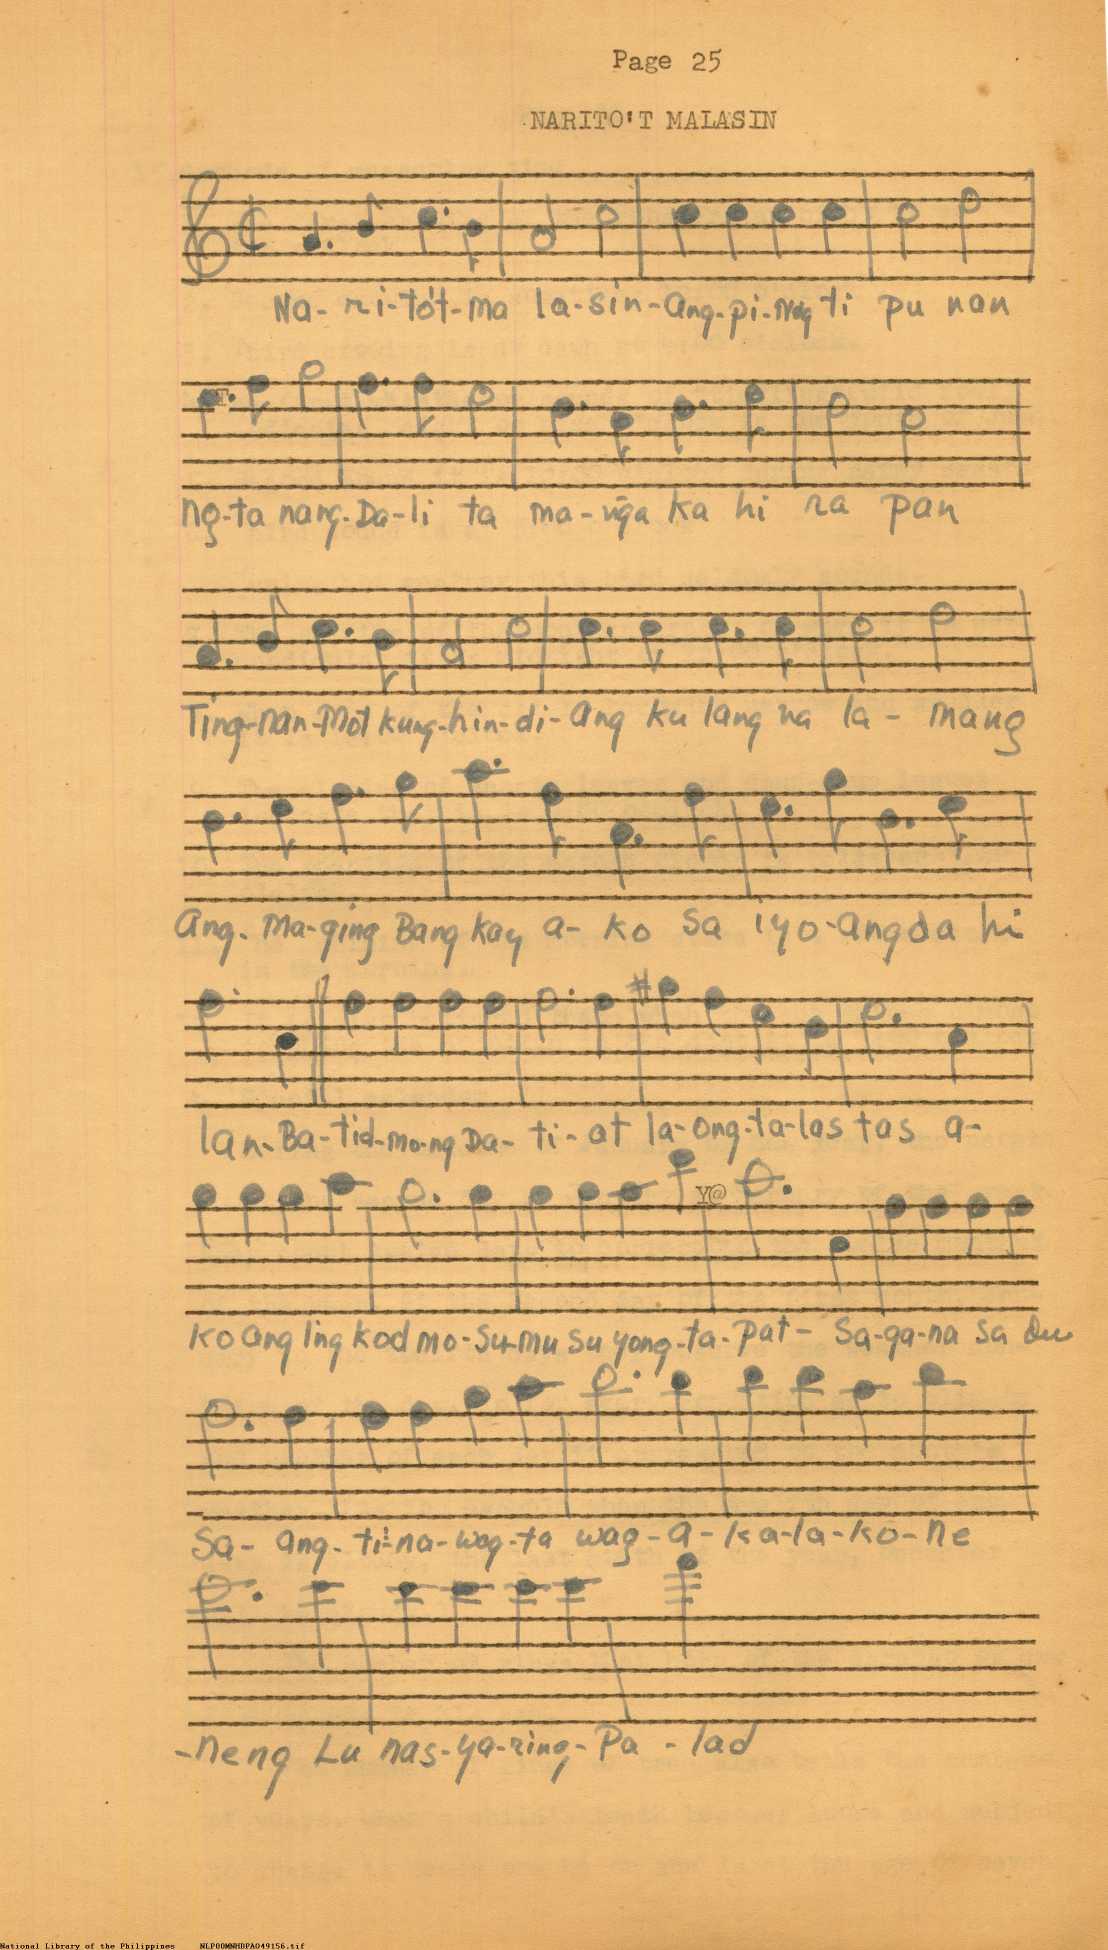 Page 25
NARITO'T MALASIN
Na- ri-tót-ma la-sin-ang-pi-nag ti pu nan
Ng-ta nang-Da-li ta ma-nga ka hi ra pan
Ting-nan-Mot kung-hin-di-ang ku lang na la- mang
Ang- Ma-ging Bang kay a- ko sa iyo-ang da hi
lan-Ba-tid-mo-ng Da-ti-at la-ong-ta-las tas a-
Y@
ko ang ling kod mo-Su-mu su yong-ta-pat- Sa-ga-na sa Du
Sa- ang-ti-na-wag-ta wag-a-ka-la-ko-ne
-neng Lu nas-ya-ring-Pa -lad
National Library of the Philippines NLP00MNHDPA049156.tif